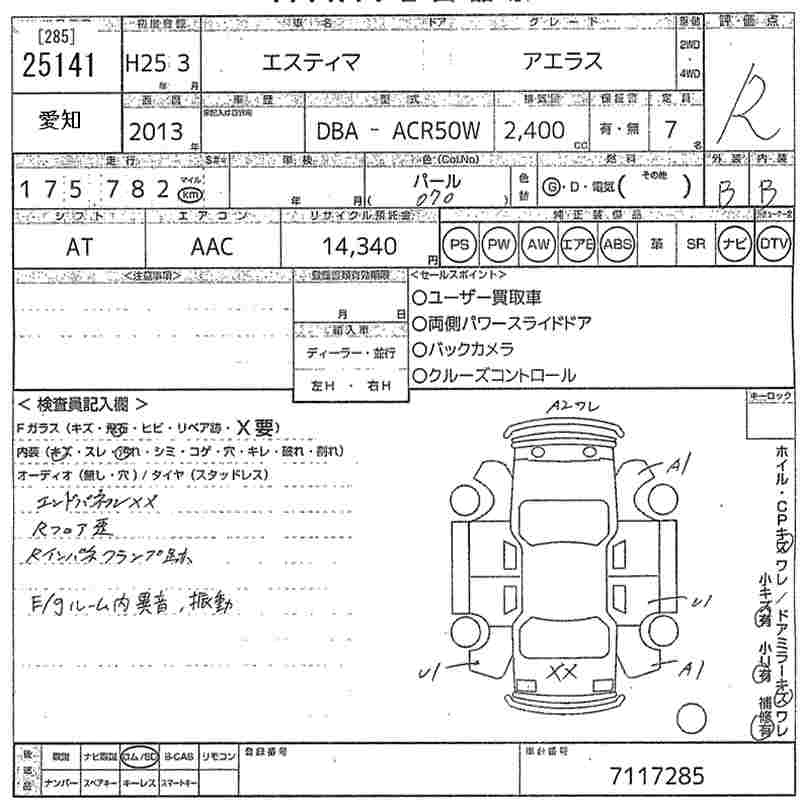 [285]
25141
愛知
初度登録
H25 3
年 月
車名 ドア グレード
エスティマ アエラス
駆動
2WD
・
4WD
評価点
R
西暦
2013
年
車歴
型式
DBA - ACR50W
排気量
2,400
cc
保証書
有・無
定員
7
名
走行
175782
マイル
km
車検
年 月
色(Col.No)
パール
( 070 )
色替
燃料
G・D・電気( その他 )
外装 内装
B B
シフト
AT
エアコン
AAC
リサイクル預託金
14,340
円
純正装備品
PS PW AW エアB ABS 革 SR ナビ DTV
<注意事項>
登録書類有効期限
月 日
輸入車
ディーラー・並行
左H ・ 右H
<セールスポイント>
○ユーザー買取車
○両側パワースライドドア
○バックカメラ
○クルーズコントロール
< 検査員記入欄 >
Fガラス (キズ・飛石・ヒビ・リペア跡・X要)
内装 (キズ・スレ・汚れ・シミ・コゲ・穴・キレ・破れ・割れ)
オーディオ (無し・穴) / タイヤ (スタッドレス)
エンドパネルXX
Rフロア歪
Rインパネフランプ跡
E/gルーム内異音,振動
A2ワレ
A1
U1
A1
U1
XX
キーロック
ホイル・CPキズ ワレ / ドアミラーキズ ワレ
小キズ有 小U有 補修有
後送品
取説 ナビ取説 ロム/SD B-CAS リモコン
ナンバー スペアキー キーレス スマートキー
登録番号
車台番号
7117285